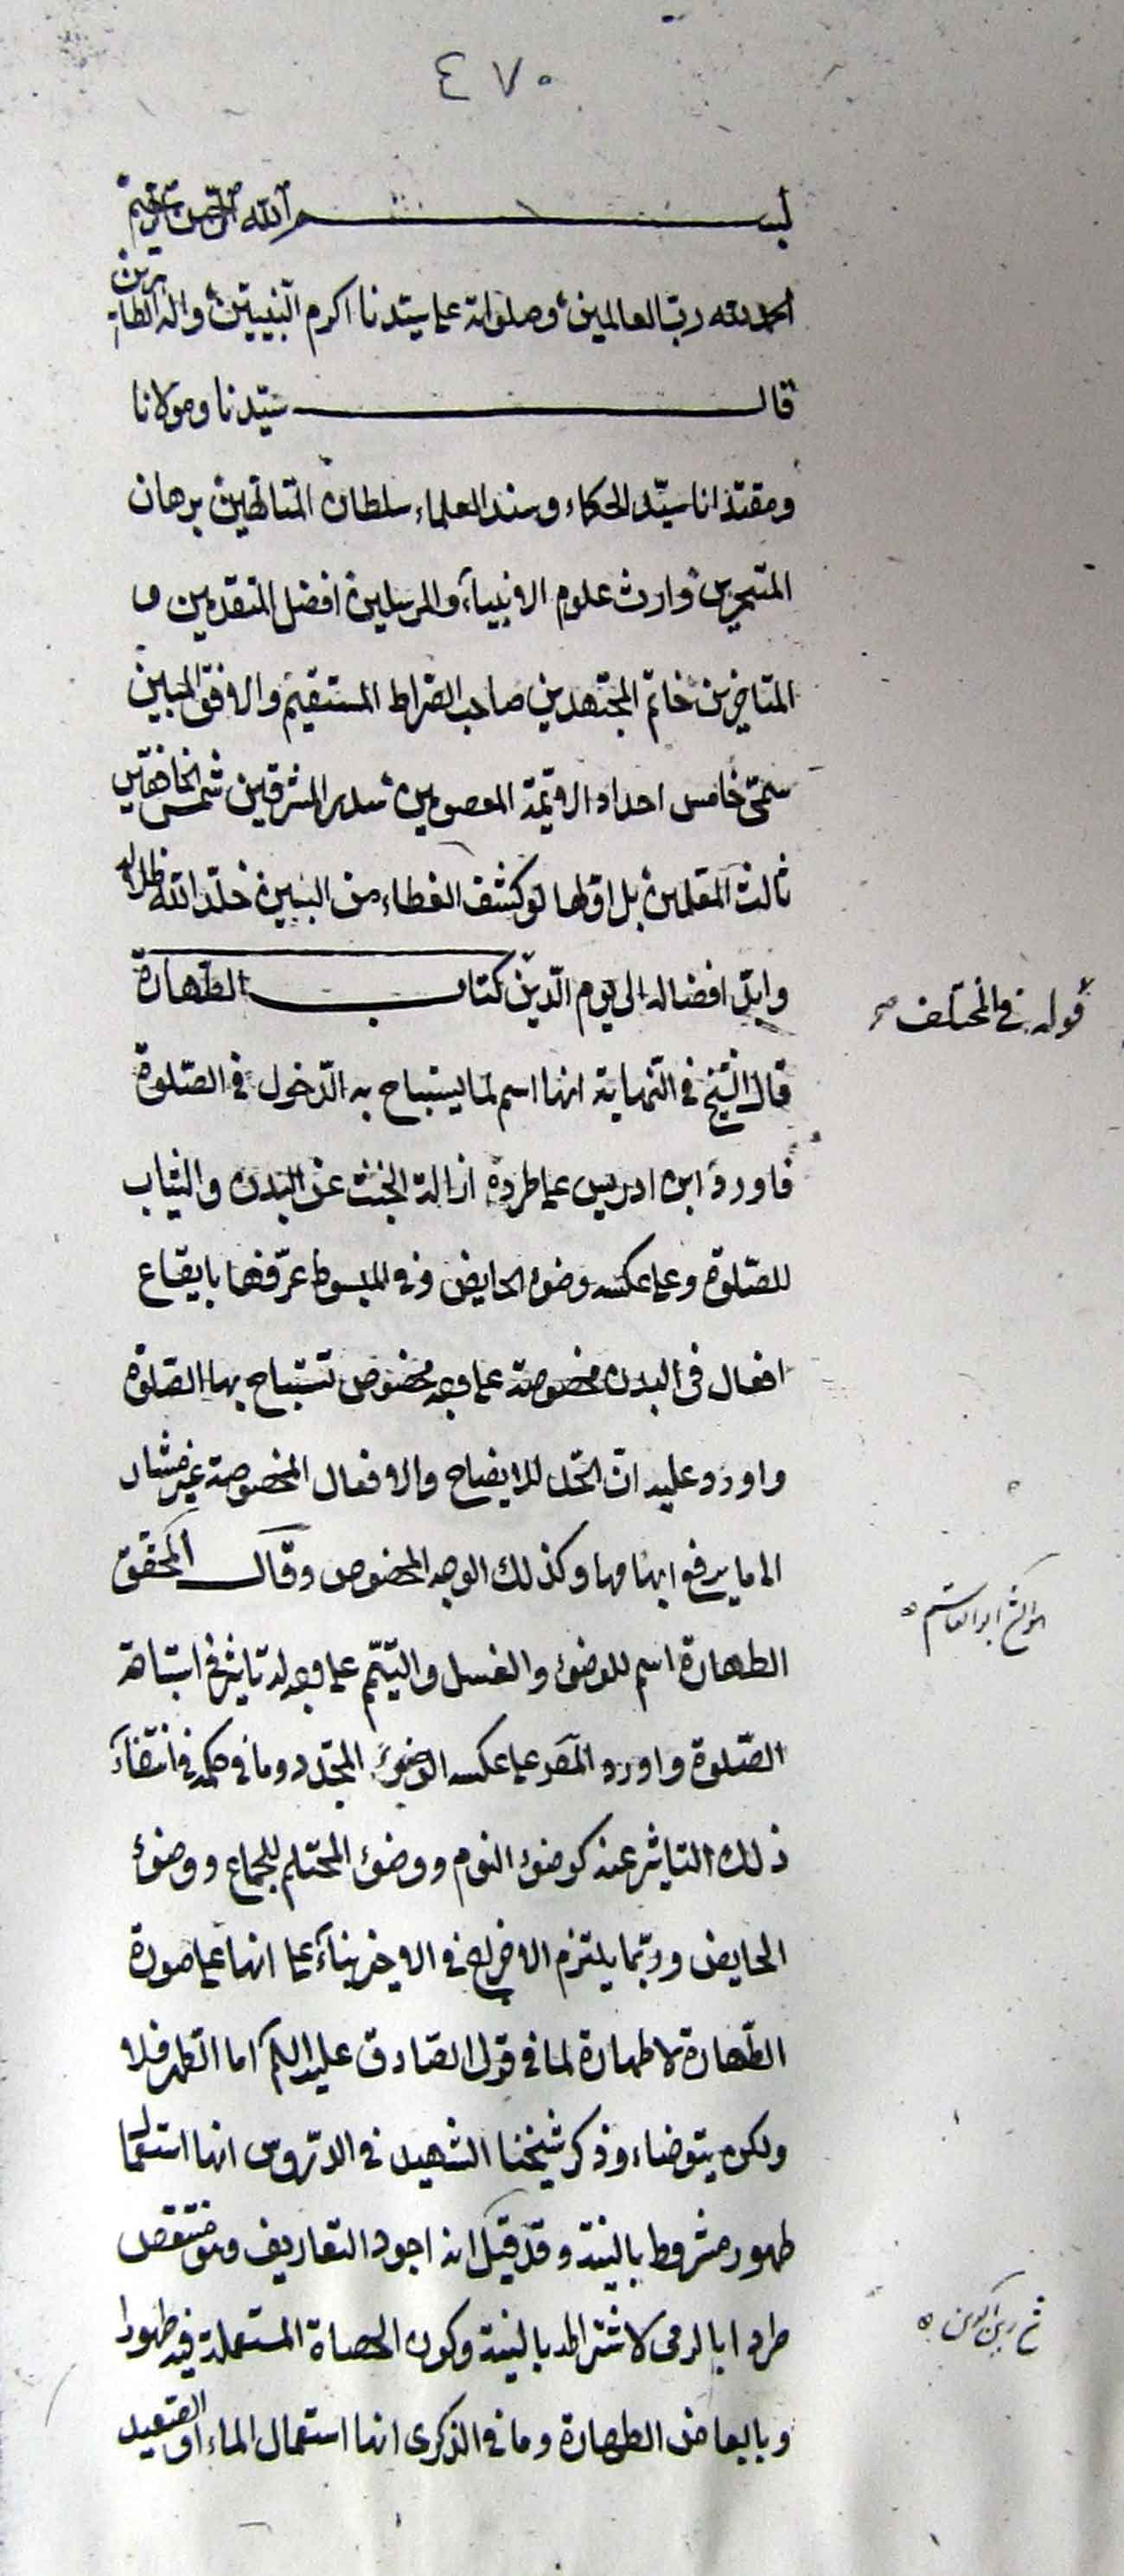 ٤٧٠
بسم الله الرحمن الرحيم
الحمد لله رب العالمين وصلواته على سيدنا اكرم النبيين واله الطاهرين
قال سيدنا ومولانا
ومقتدانا سيد الحكماء وسند العلماء سلطان المتالهين برهان
المتبحرين وارث علوم الانبياء والمرسلين افضل المتقدمين و
المتاخرين خاتم المجتهدين صاحب الصراط المستقيم والافق المبين
سمي خامس اجداده الائمة المعصومين بدر المشرقين شمس الخافقين
ثالث المعلمين بل اولها لو كشف الغطاء من البين خلد الله ظلاله
وابد افضاله الى يوم الدين كتاب الطهارة
قوله في المختلف
قال الشيخ في النهاية انها اسم لما يستباح به الدخول في الصلوة
فاورد ابن ادريس على طرده ازالة الخبث عن البدن والثياب
للصلوة وعلى عكسه وضوء الحايض وفي المبسوط عرفها بايقاع
افعال في البدن مخصوصة على وجه مخصوص تستباح بها الصلوة
واورد عليه ان الحد للايضاح والافعال المخصوصة غير مشار
الى ما يرفع ابهامها وكذلك الوجه المخصوص وقال المحقق
هو الشيخ ابو القاسم
الطهارة اسم للوضوء والغسل والتيمم على وجه له تاثير في استباحة
الصلوة واورد المص على عكسه الوضوء المجدد وما في حكمه في انتفاء
ذلك التاثير عنه كوضوء النوم ووضوء المحتلم للجماع ووضوء
الحايض وربما يلتزم الاخراج في الاخير بناء على انها على صورة
الطهارة لا طهارة لما في قول الصادق عليه السلم اما الطهر فلا
ولكن يتوضاء وذكر شيخنا الشهيد في الدروس انها استعمال
طهور مشروط بالنية وقد قيل انه اجود التعاريف وهو منتقض
طردا بالرمى لاشتراطه بالنية وكون الحصاة المستعملة فيه طهورا
وبابعاض الطهارة وما في الذكرى انها استعمال الماء او الصعيد